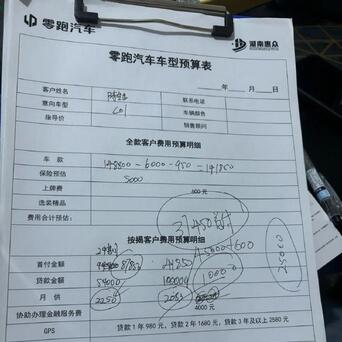 零跑汽车 湖南惠众
零跑汽车车型预算表
年 月 日
客户姓名 联系电话
意向车型 C01 车辆颜色
指导价 销售顾问
全款客户费用预算明细
车 款 148800-6000-950=141850
保险预估 5000
上牌费 800元
选装精品
费用合计预估:
37450
按揭客户费用预算明细
5000+600
首付金额 81850 41850
贷款金额 54000 100000 10000
月 供 2250 205
4000元
25000
协助办理金融服务费 贷款1年980元,贷款2年1680元,贷款3年及以上2580元